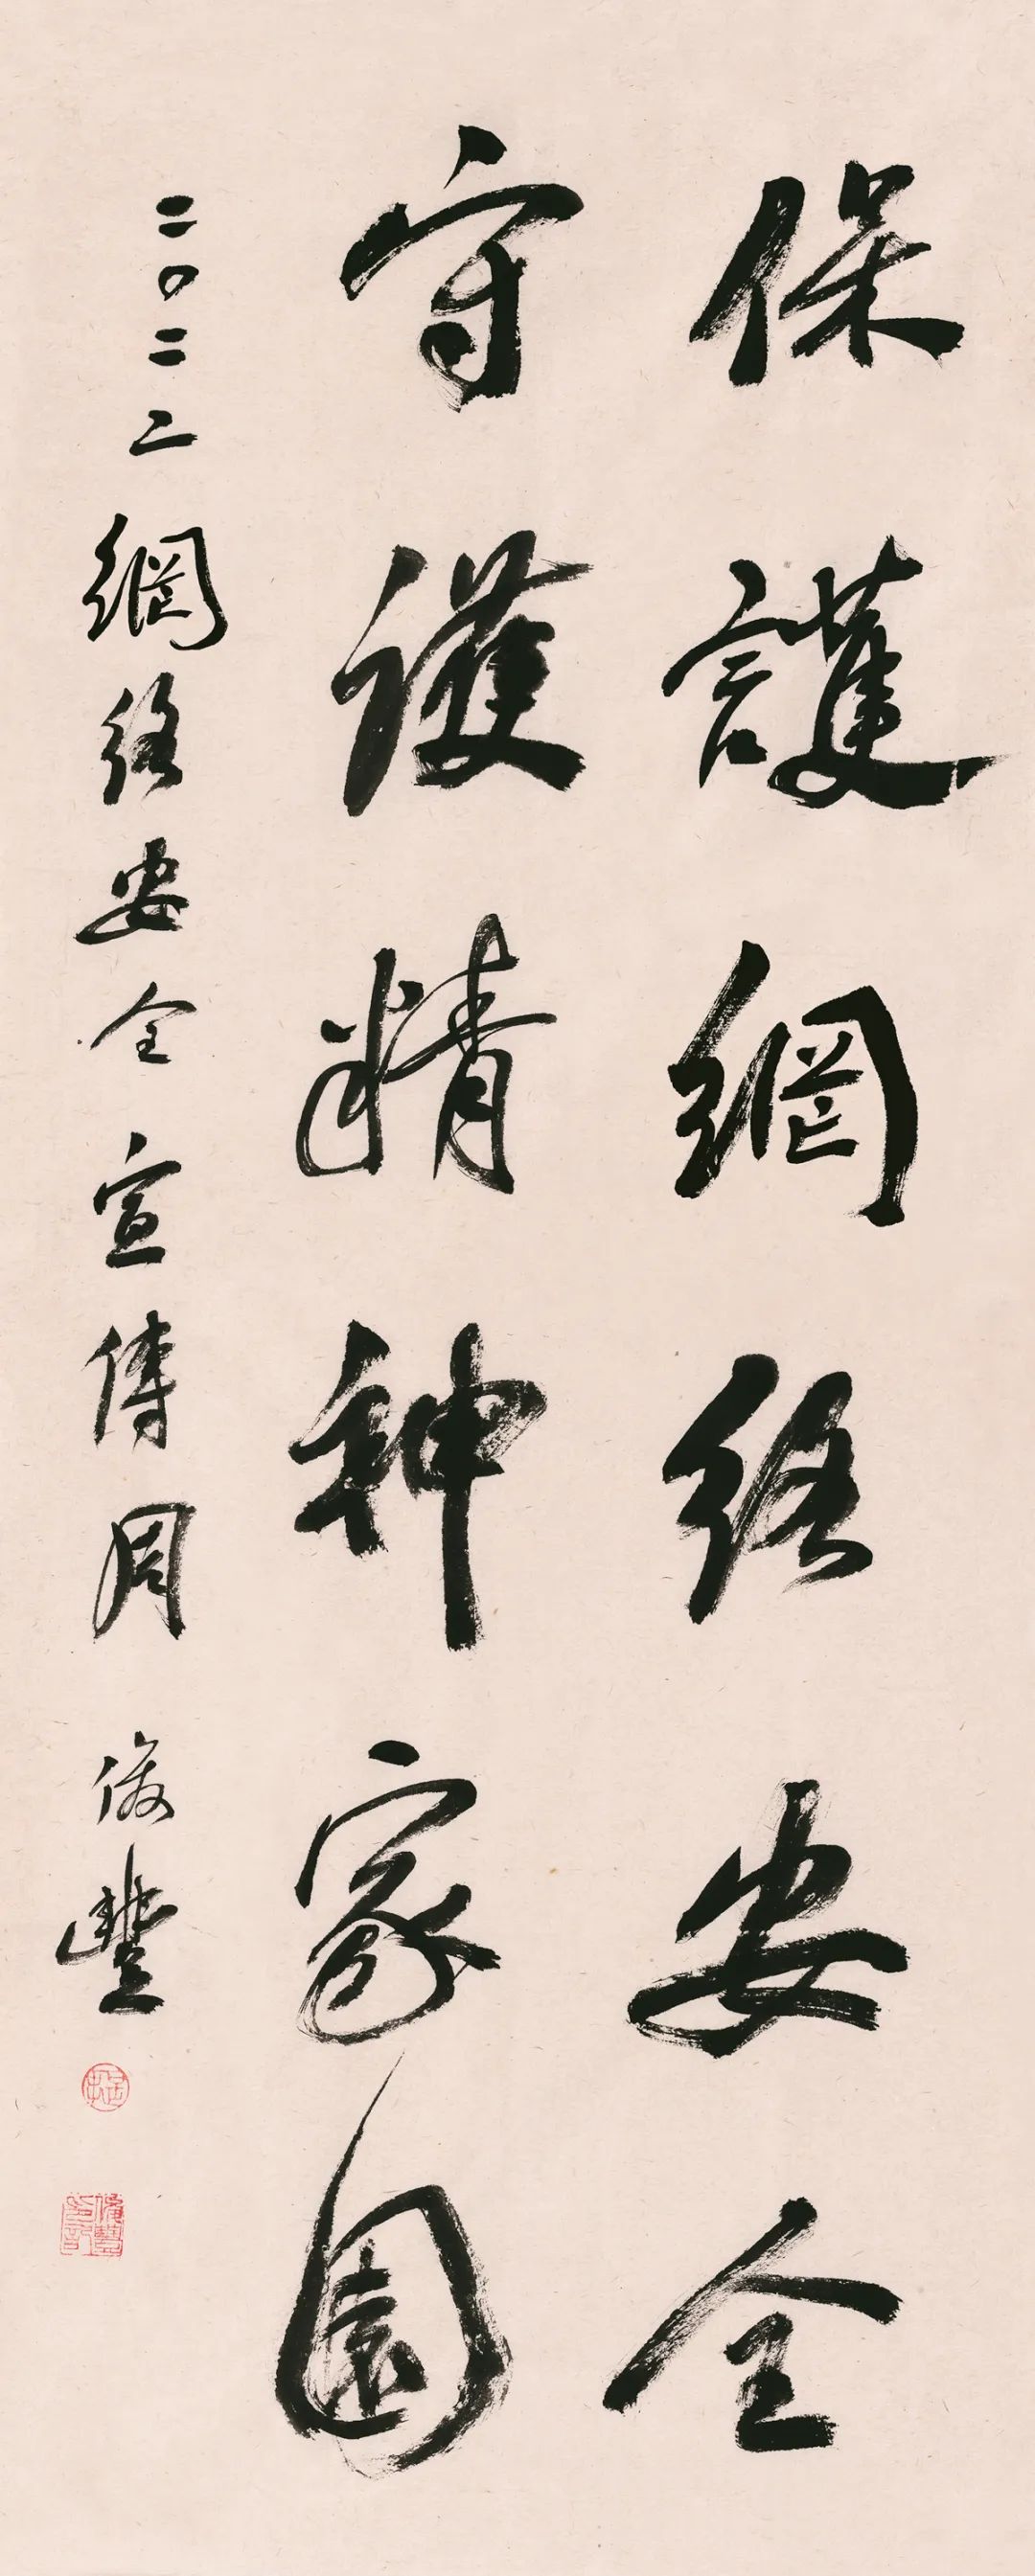 保護網絡安全
守護精神家園
二〇二二網絡安全宣傳周 俊豐